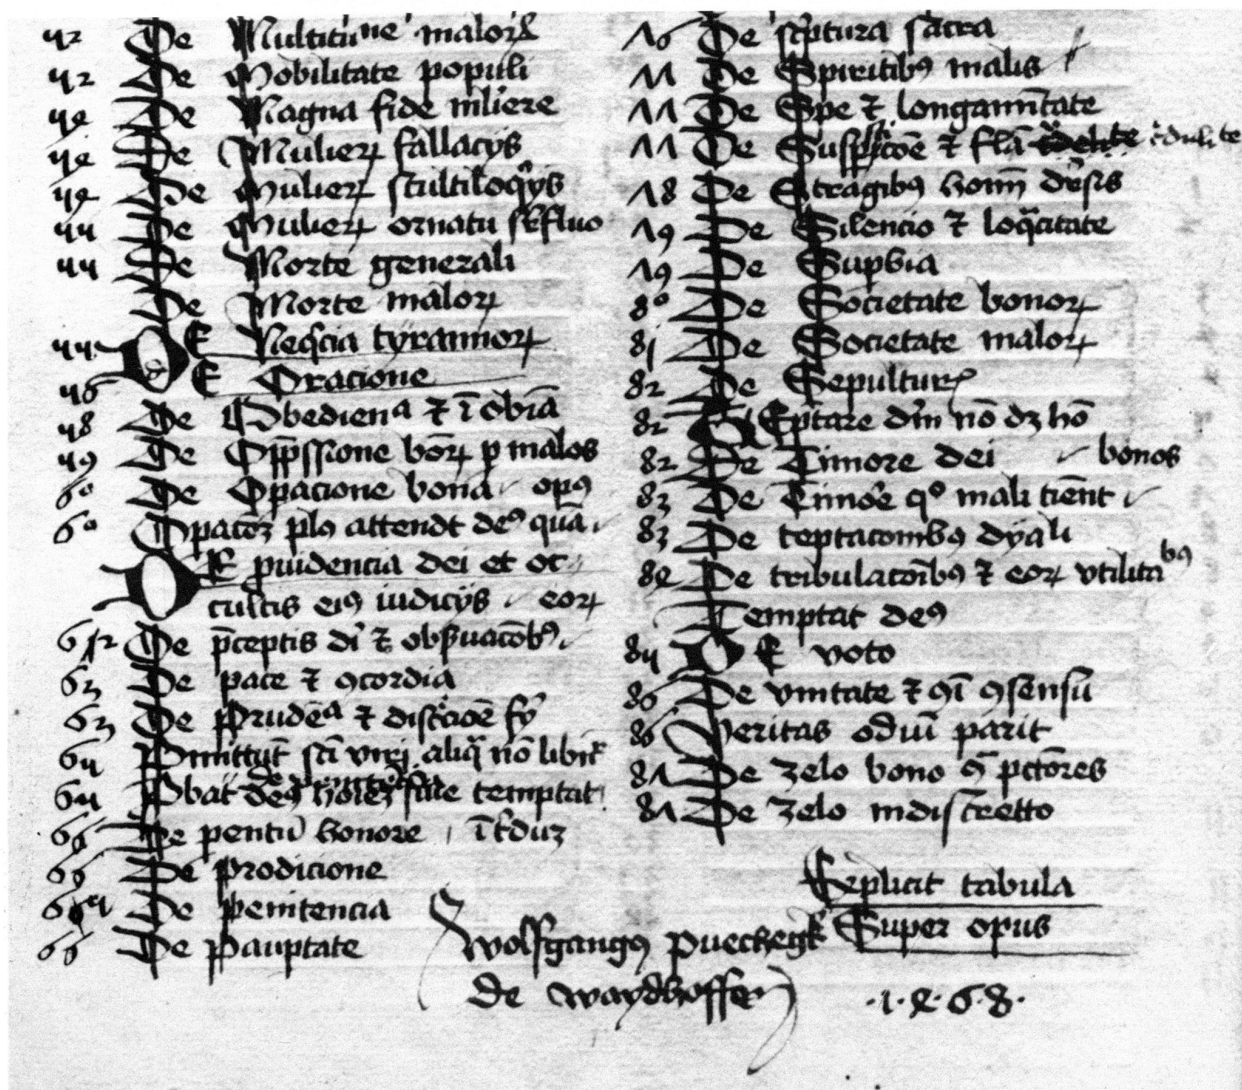 52 De Multitudine malorꝝ
52 De Mobilitate populi
54 De Magna fide mulieře
54 De Mulierꝝ fallacijs
54 De Mulierꝝ stultiloquijs
55 De Mulierꝝ ornatu suꝑfluo
55 De Morte generali
De Morte malorꝝ
55 DE Neqͥcia tyrannorꝝ
56 DE Oracione
58 De Obedienᵃ ⁊ īobīa
59 De Opp̄ssione bonorꝝ ꝑ malos
60 De Oꝑacione bona opꝰ
60 Oꝑacōꝫ pl̄ꝰ attendt deꝰ quā
DE ꝓuidencia dei et oc
cultis eiꝰ iudicijs eorꝝ
62 De p̄ceptis di ⁊ obẜuacōibꝰ
63 De pace ⁊ ꝯcordia
63 De Prudēᵃ ⁊ discͥcioē
65 Pmittūt sti viri aliqͣ nō
65 Pbat deꝰ temptat
66 De honore
66 De Prodicione
66 De penitencia
66 De pauꝑtate
76 De scͥptura sacra
77 De Spiritibꝰ malis
77 De Spe ⁊ longanitate
77 De Suspicōe ⁊
78 De Stragibꝰ hoīm diuͥsis
79 De Silencio ⁊ loqͣcitate
79 De Suꝑbia
80 De Societate bonorꝝ
81 De Societate malorꝝ
82 De Sepulturꝭ
82 TEptare dm̄ nō dꝫ hō
82 De Timore dei bonos
83 De Timoͤe qͦ mali timent
83 De teptacombꝰ dyali
84 De tribulacōibꝰ ⁊ eorꝝ vtilitiᵇꝰ
Temptat deꝰ
85 DE voto
86 De vnitate ⁊ ꝯsensu
86 Veritas odiū parit
87 De zelo bono ꝯͣ pctōres
87 De zelo indiscretto
Explicit tabula
Super opus
Wolfgangꝰ Puechegk
de waydhoffen ·1·4·6·8·